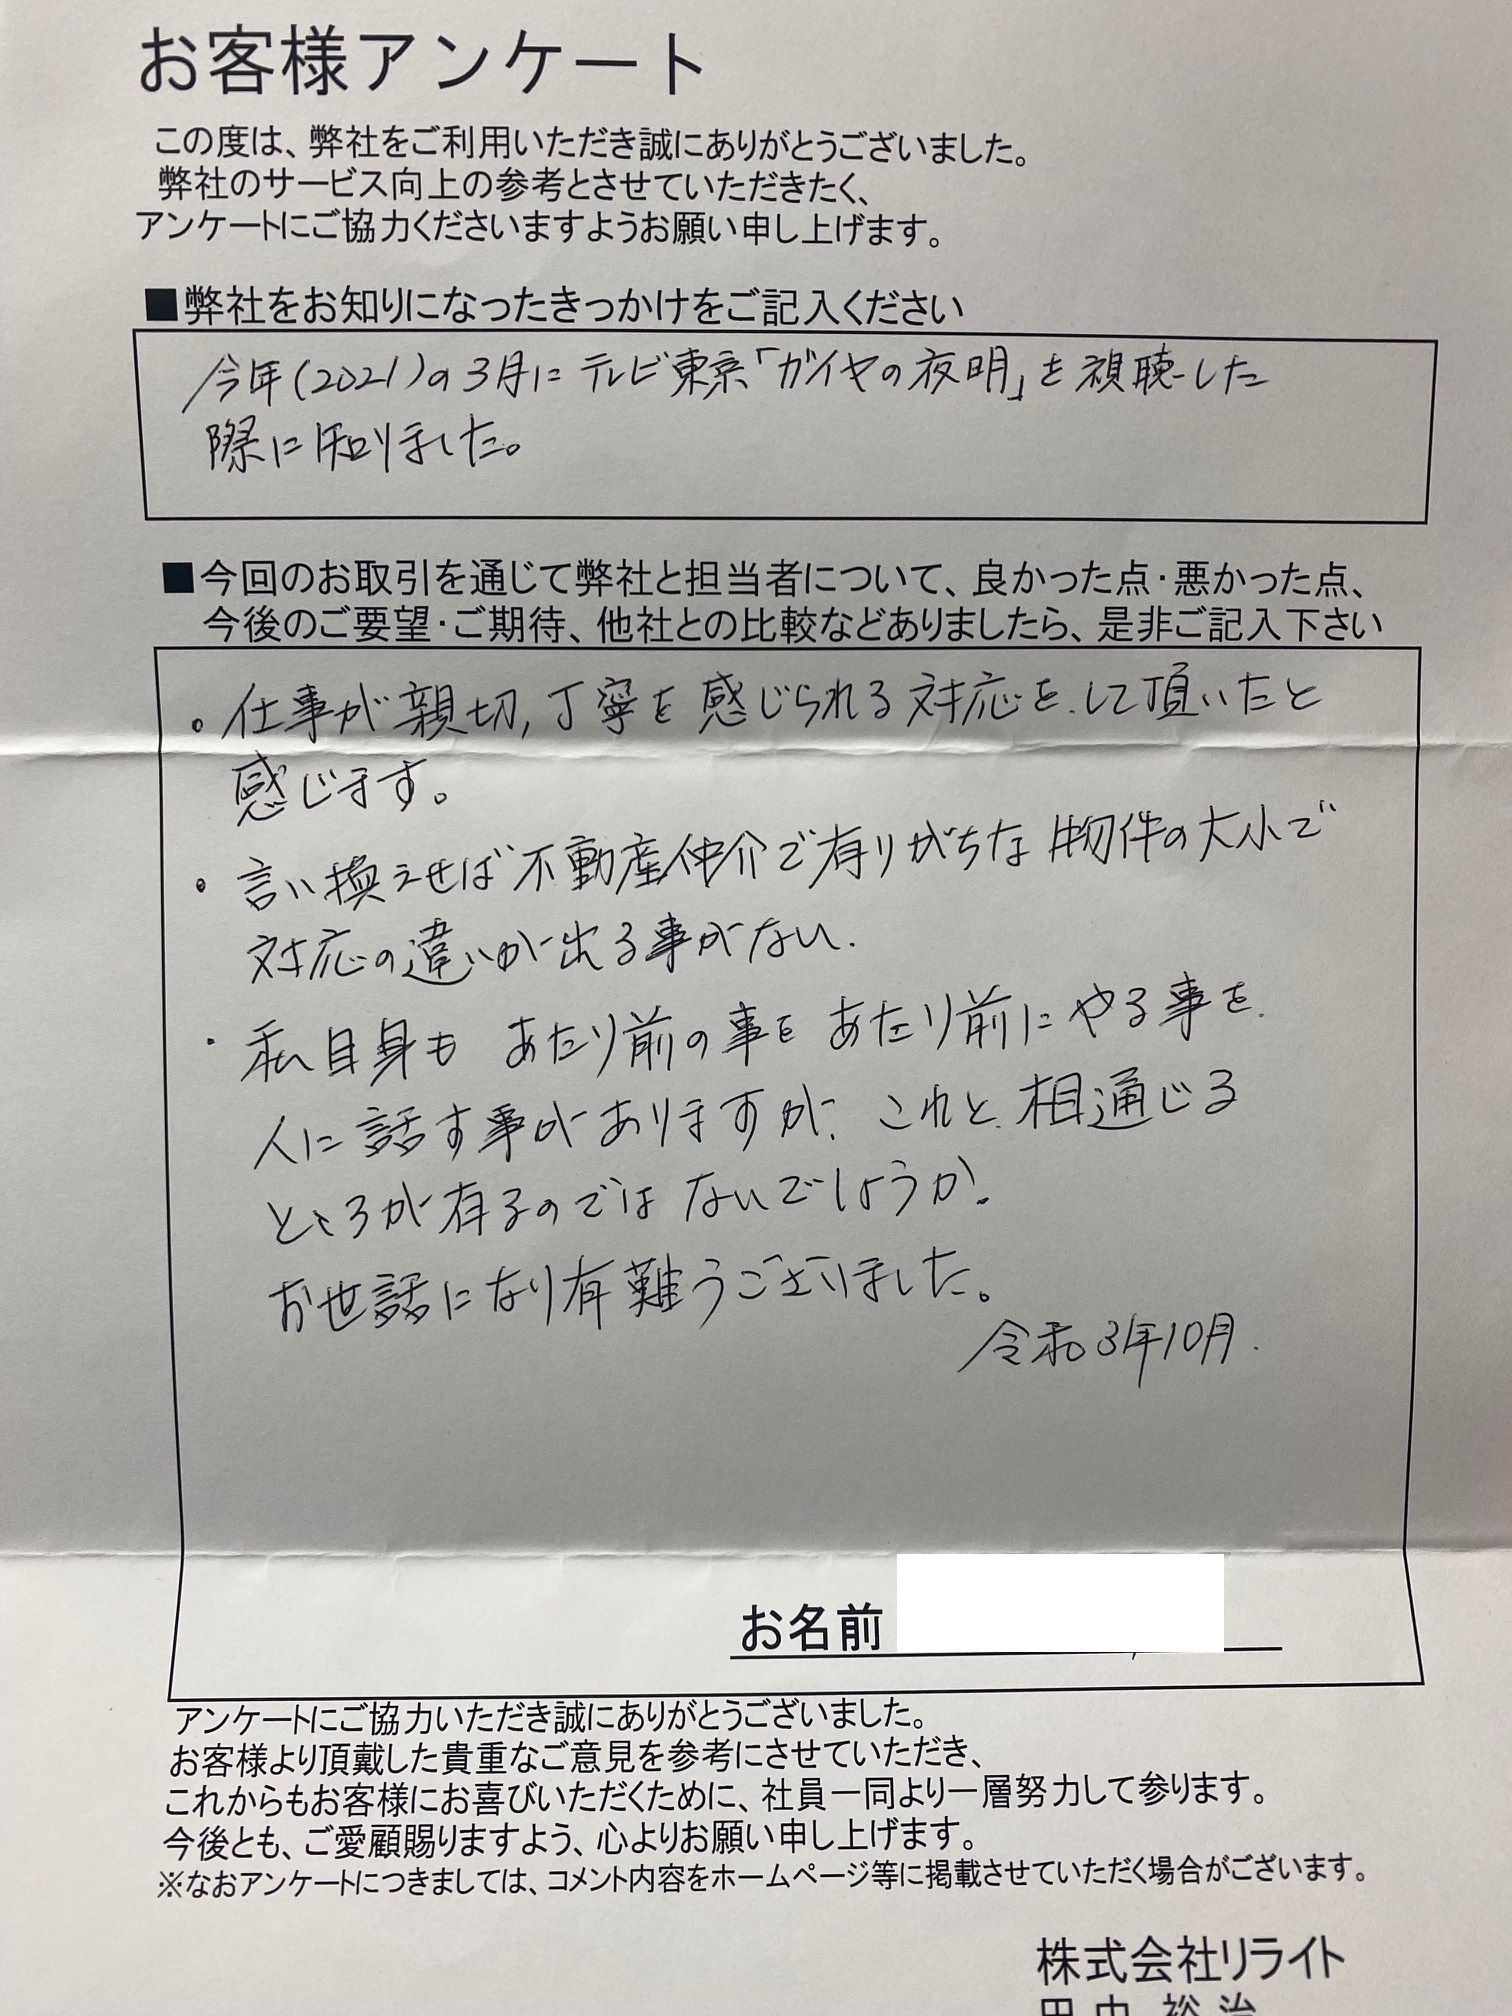 お客様アンケート
この度は、弊社をご利用いただき誠にありがとうございました。
弊社のサービス向上の参考とさせていただきたく、
アンケートにご協力くださいますようお願い申し上げます。
■弊社をお知りになったきっかけをご記入ください
今年(2021)の3月にテレビ東京「ガイヤの夜明」を視聴した
際に知りました。
■今回のお取引を通じて弊社と担当者について、良かった点・悪かった点、
今後のご要望・ご期待、他社との比較などありましたら、是非ご記入下さい
・仕事が親切,丁寧を感じられる対応をして頂いたと
感じます。
・言い換えせば不動産仲介で有りがちな物件の大小で
対応の違いが出る事がない.
・私自身も あたり前の事を あたり前にやる事を
人に話す事がありますが、これと相通じる
ところが有るのではないでしょうか。
お世話になり有難うございました。
令和3年10月.
お名前
アンケートにご協力いただき誠にありがとうございました。
お客様より頂戴した貴重なご意見を参考にさせていただき、
これからもお客様にお喜びいただくために、社員一同より一層努力して参ります。
今後とも、ご愛顧賜りますよう、心よりお願い申し上げます。
※なおアンケートにつきましては、コメント内容をホームページ等に掲載させていただく場合がございます。
株式会社リライト
田中 裕治